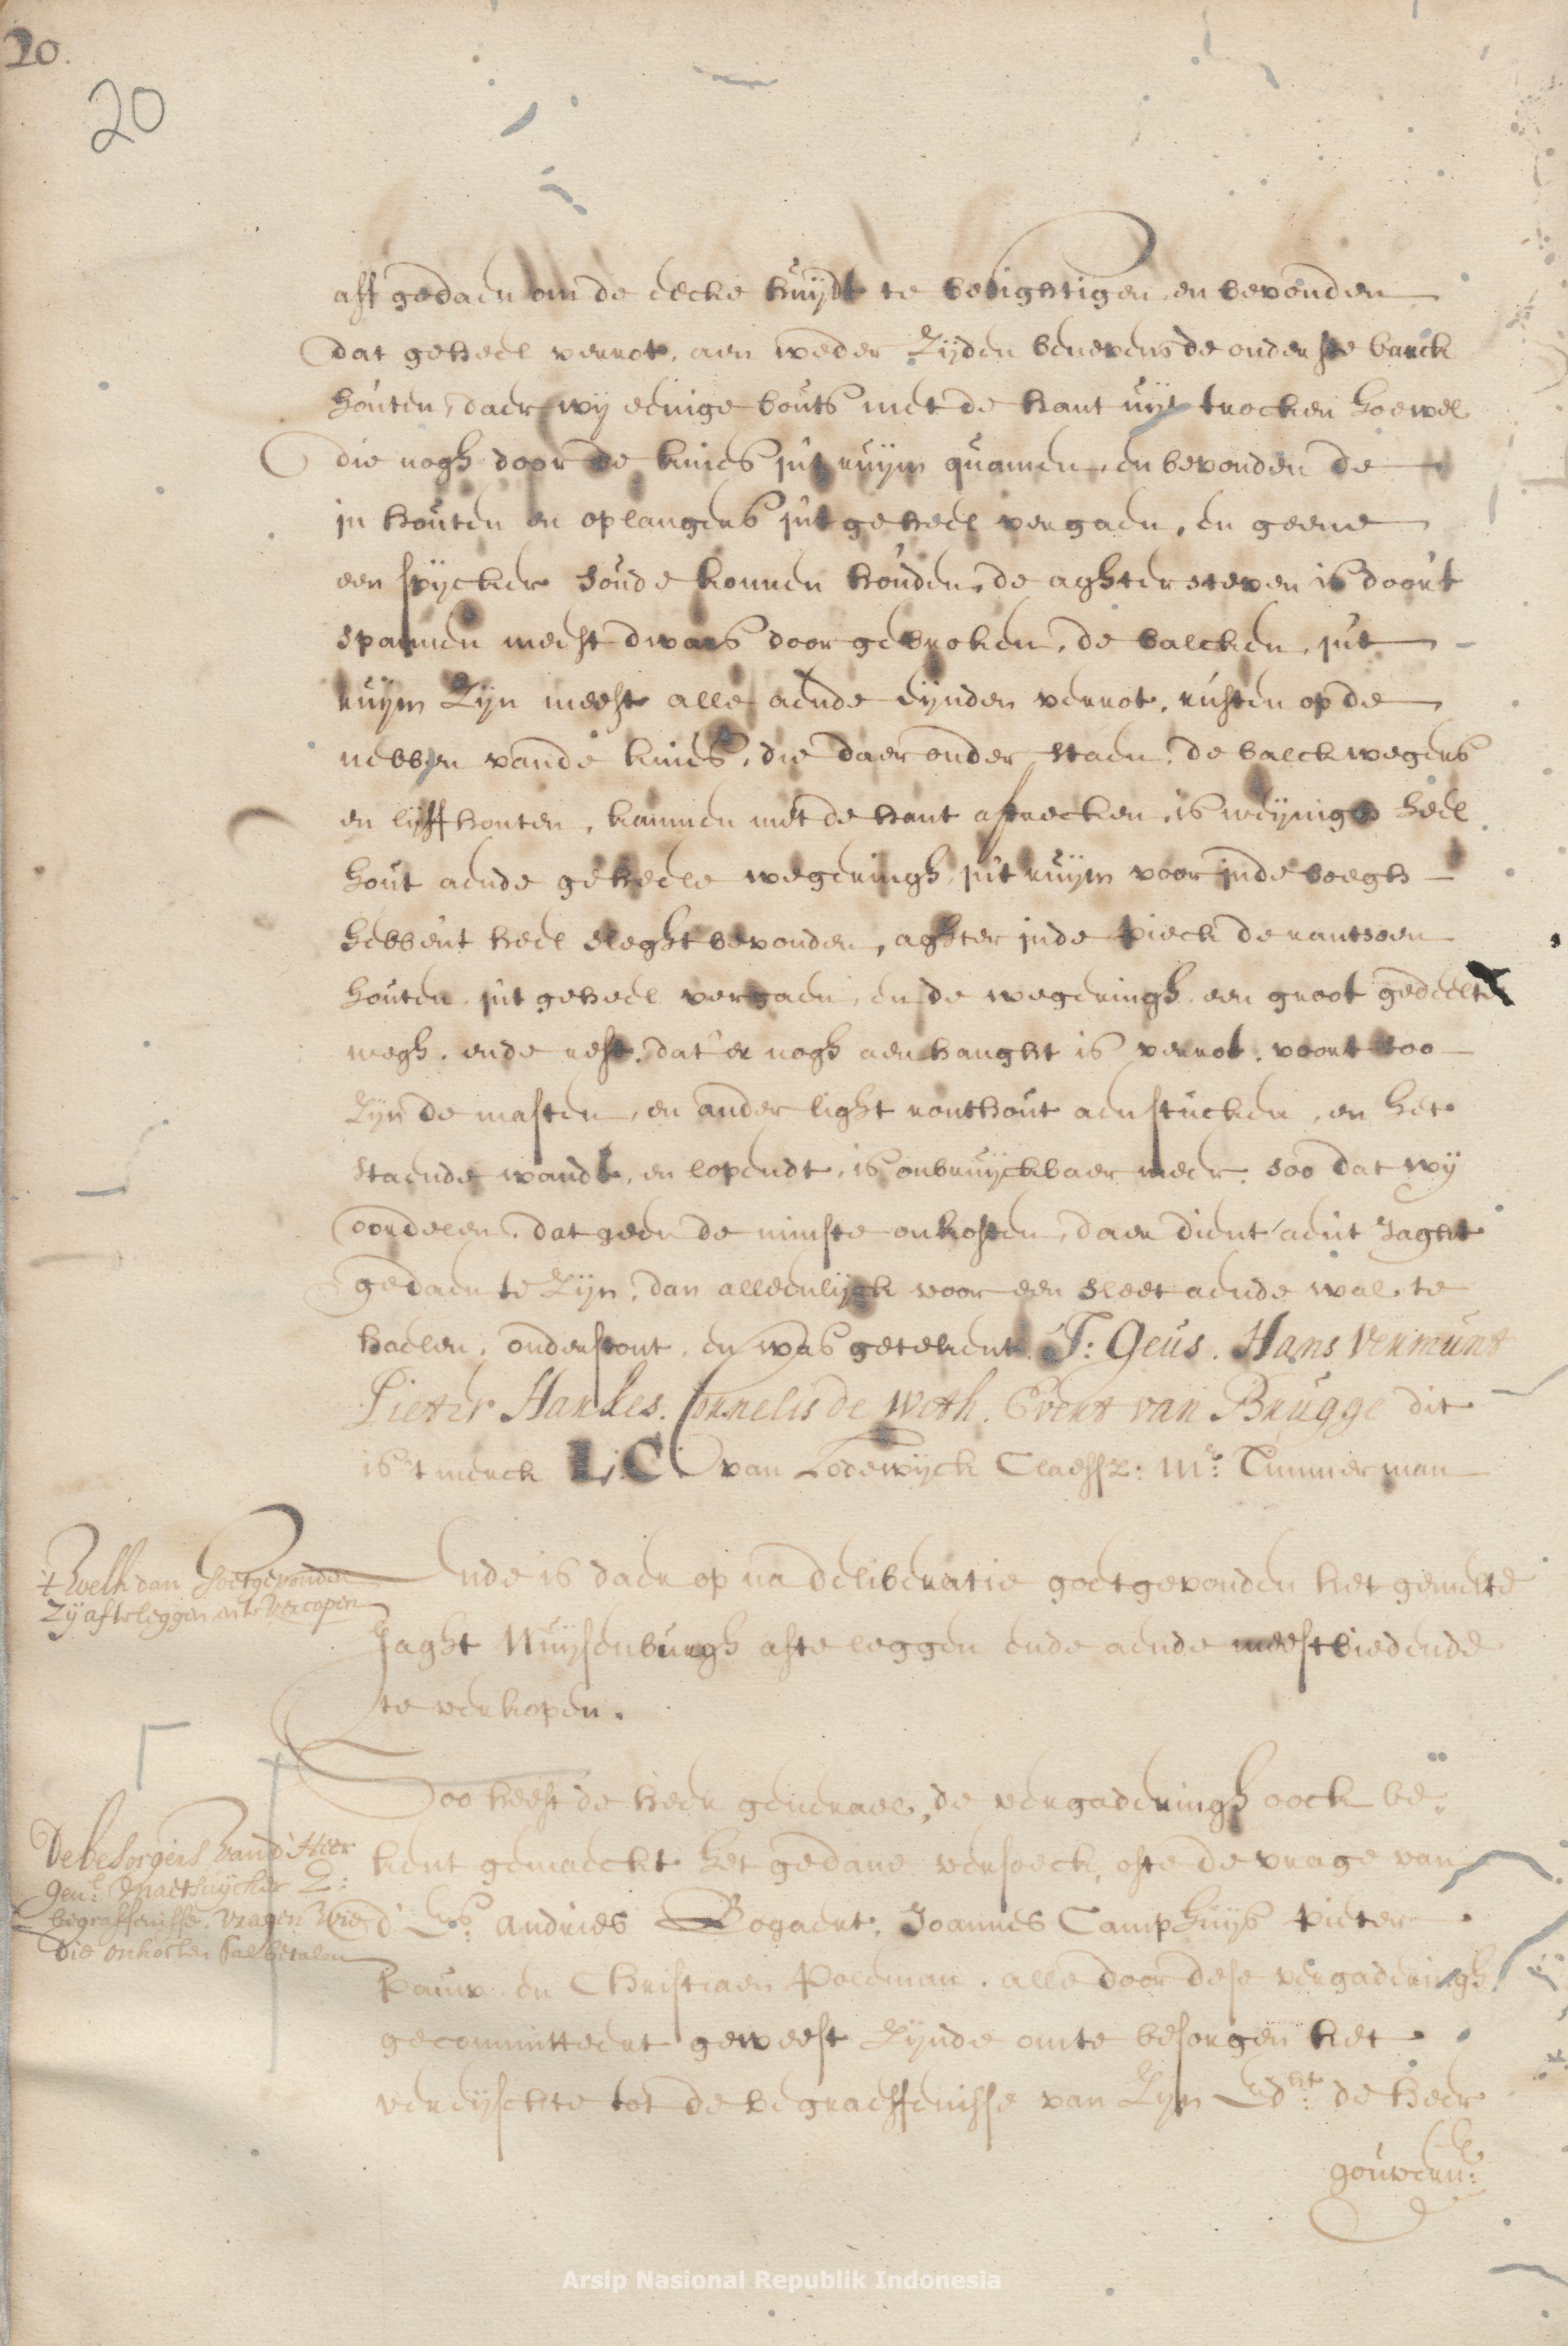 20.
20
aff gedaen om de eecke huijdt te besightigen, en bevonden
dat geheel verrot, aen weder zijden benevens de onderste barck
houten, daer wij eenige bouts met de hant uijt trocken hoewel
die nogh door de knies in't ruijm quamen, en bevonden de
in houten en oplangers in't geheel vergaen, en geene
een spijcker soude konnen houden, de aghter steven is door't
spannen meest dwars door gebroken, de balcken, in't
ruijm zijn meest alle aende eijnden verrot, rusten op de
nebben vande knies, die daer onder staen, de balckwegers
en lijffhouten, kannen met de hant aftrecken, is weijnigh heel
hout aende geheele wegeringh, in't ruijm voor inde boegh
hebben't heel sleght bevonden, aghter inde pieck de rantsoen
houten, in't geheel vergaen, en de wegeringh een groot gedeelte
wegh, ende rest, dat'er nogh aen hanght is verrot, voort soo
zijn de masten, en ander light ronthout aen stucken, en het
staende wandt, en lopendt, is onbruijckbaer meer, soo dat wij
oordelen, dat geen de minste onkosten, daer dient aen't Jaght
gedaen te zijn, dan alleenlijck voor een sleet aende wal te
haelen, onderstont, en was getekent. T: Geus. Hans Vermunt
Pieter Harkes. Cornelis de Weth. Evert van Brugge dit
is't merck L: C. van Lodewijck Claessz: Mr: Timmerman
't Welk dan Goetgevonden
Zij afteleggen en te Vercopen
Ende is daer op na deliberatie goetgevonden het gemelte
Jaght Muijsenburgh afte leggen ende aende meestbiedende
te verkopen.
De besorgers van d' Heer
genl: Maetsuijcker Z:
begraffenisse. vragen wie
die onkosten sal betalen
Soo heeft de heer generael, de vergaderingh oock be„
kent gemaeckt het gedane versoeck, ofte de vrage van
d' Es: Andries Bogaert, Joannes Camphuijs Pieter
Pauw en Christiaen Poleman, alle door dese vergaderingh
gecommitteert geweest zijnde omte besorgen het
vereijschte tot de begraeffenisse van Zijn Edht: de heer
gouvern:
Arsip Nasional Republik Indonesia